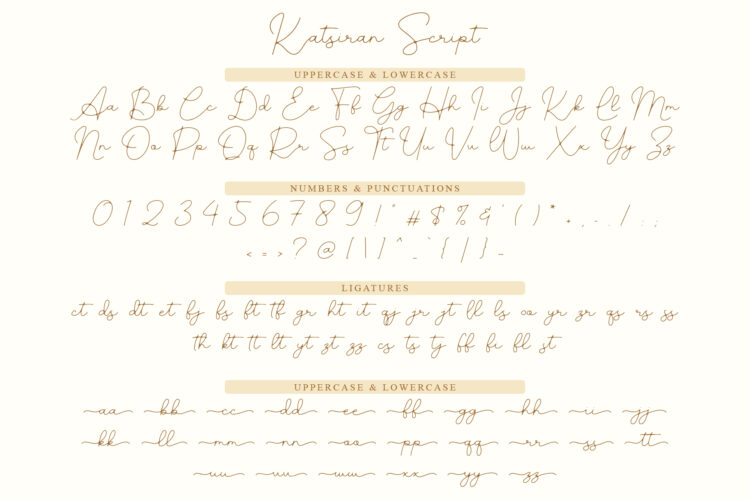 Katsiran Script
UPPERCASE & LOWERCASE
Aa Bb Cc Dd Ee Ff Gg Hh Ii Jj Kk Ll Mm
Nn Oo Pp Qq Rr Ss Tt Uu Vu Ww Xx Yy Zz
NUMBERS & PUNCTUATIONS
0 1 2 3 4 5 6 7 8 9 ! " # $ % & ' ( ) * + , - . / : ;
< = > ? @ [ | ] ^ _ ` { / } ~
LIGATURES
ct ds dt et fj fs ft tf gr ht it qj jr jt ll ls oo yr zr qs rs ss
th kt tt lt yt zt zz cs ts tj ff fi fl st
UPPERCASE & LOWERCASE
aa bb cc dd ee ff gg hh ii jj
kk ll mm nn oo pp qq rr ss tt
uu vv ww xx yy zz